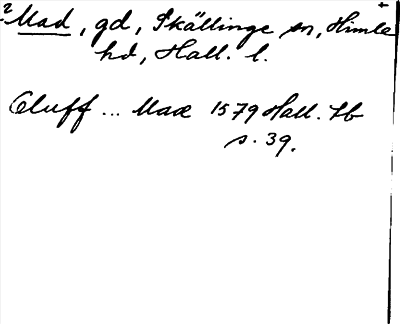 2 Mad, gd, Skällinge sn, Himle
hd, Hall. l.
Oluff ... Madz 1579 Hall. Jb
s. 39.